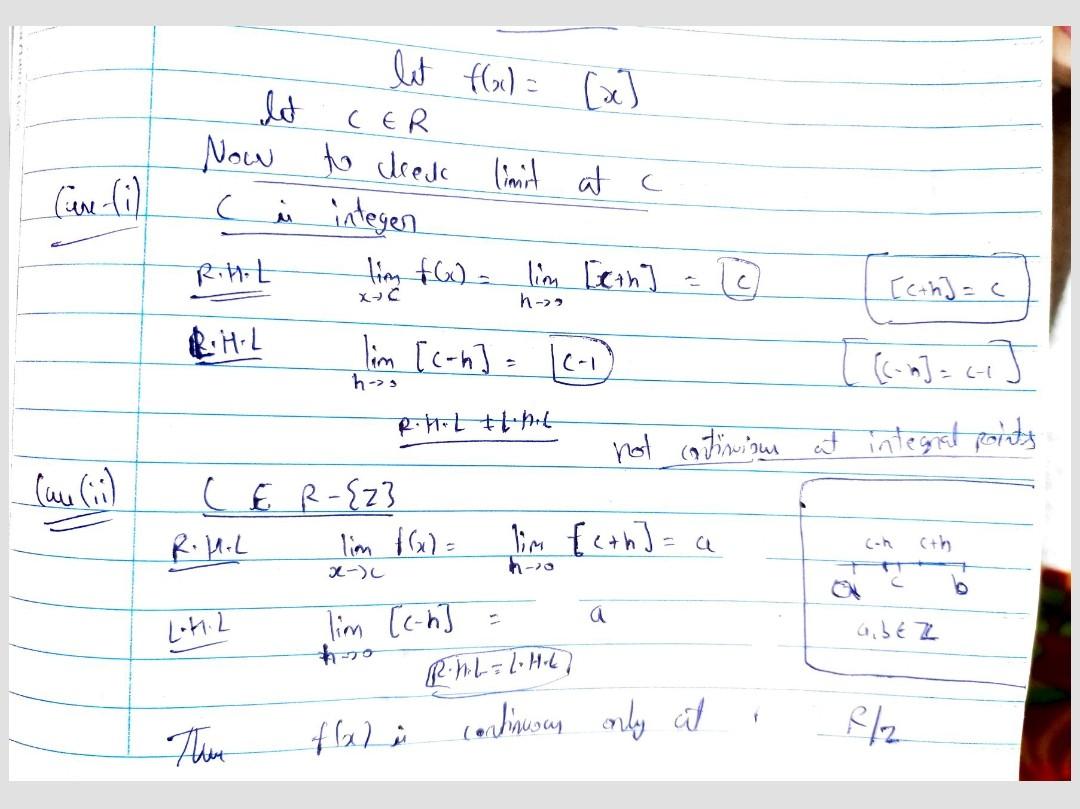 let f(x) = [x]
let C ∈ R
Now to check limit at c
Case-(i) C is integer
R.H.L lim x→c f(x) = lim h→0 [x+h] = c [c+h] = c
R.H.L lim h→0 [c-h] = c-1 [[c-h] = c-1]
R.H.L ≠ L.H.L
not continuous at integral points
Case (ii) C ∈ R-{Z}
R.H.L lim x→c f(x) = lim h→0 [c+h] = a
c-h c+h
a c b
a,b ∈ Z
L.H.L lim h→0 [c-h] = a
R.H.L = L.H.L
Thus f(x) is continuous only at R/Z